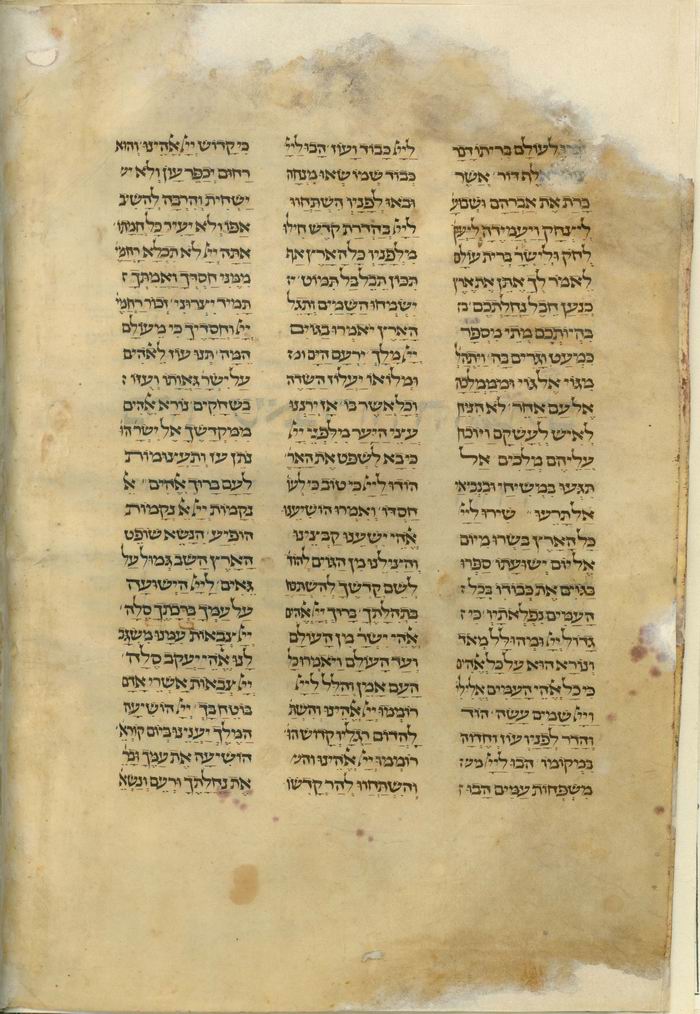 לעולם בריתו דבר
לאלף דור אשר
כרת את אברהם ושבועתו
ליצחק ויעמידה ליעקב
לחק לישר ברית עולם
לאמר לך אתן את ארץ
כנען חבל נחלתכם
בהיותכם מתי מספר
כמעט וגרים בה ויתהל
מגוי אל גוי וממלכה
אל עם אחר לא הניח
לאיש לעשקם ויוכח
עליהם מלכים אל
תגעו במשיחי ובנביאי
אל תרעו שירו לייי
כל הארץ בשרו מיום
אל יום ישועתו ספרו
בגוים את כבודו בכל
העמים נפלאתיו כי
גדול ייי ומהולל מאד
ונורא הוא על כל אלהים
כי כל אלהי העמים אלילי
וייי שמים עשה הוד
והדר לפניו עוז וחדוה
במקומו הבו לייי
משפחות עמים הבו
לייי כבוד ועוז הבו לייי
כבוד שמו שאו מנחה
ובאו לפניו השתחוו
לייי בהדרת קדש חילו
מלפניו כל הארץ אף
תכון תבל בל תמוט
ישמחו השמים ותגל
הארץ ויאמרו בגוים
ייי מלך ירעם הים
ומלואו יעלוז השדה
וכל אשר בו אז ירננו
עיצי היער מלפני ייי
כי בא לשפט את האר
הודו לייי כי טוב כי לעו
חסדו ואמרו הושיענו
אלהי ישענו קבצינו
והצילנו מן הגוים להוד
לשם קדשך להשתבח
בתהלתך ברוך ייי אלהים
אלהי ישר מן העולם
ועד העולם ויאמרו כל
העם אמן והלל לייי
רוממו ייי אלהינו והשת
להדום רגליו קדוש הו
רוממו ייי אלהינו והש
והשתחוו להר קדשו
כי קדוש ייי אלהינו והוא
רחום יכפר עון ולא יש
ישחית והרבה להשיב
אפו ולא יעיר כל חמתו
אתה ייי לא תכלא רחמי
ממני חסדך ואמתך
תמיד יצרוני זכור רחמי
ייי וחסדיך כי מעולם
המה תנו עוז לאלהים
על ישר גאותו ועזו
בשחקים נורא אלהים
ממקדשך אל ישר הו
נתן עז ותעצומות
לעם ברוך אלהים א
נקמות ייי א נקמות
הופיע הנשא שופט
הארץ השב גמול על
גאים לייי הישועה
על עמך ברכתך סלה
ייי צבאות עמנו משגב
לנו אלהי יעקב סלה
ייי צבאות אשרי אדם
בוטח בך ייי הושיעה
המלך יעננו ביום קורא
הושיעה את עמך וברך
את נחלתך ורעם ונשא